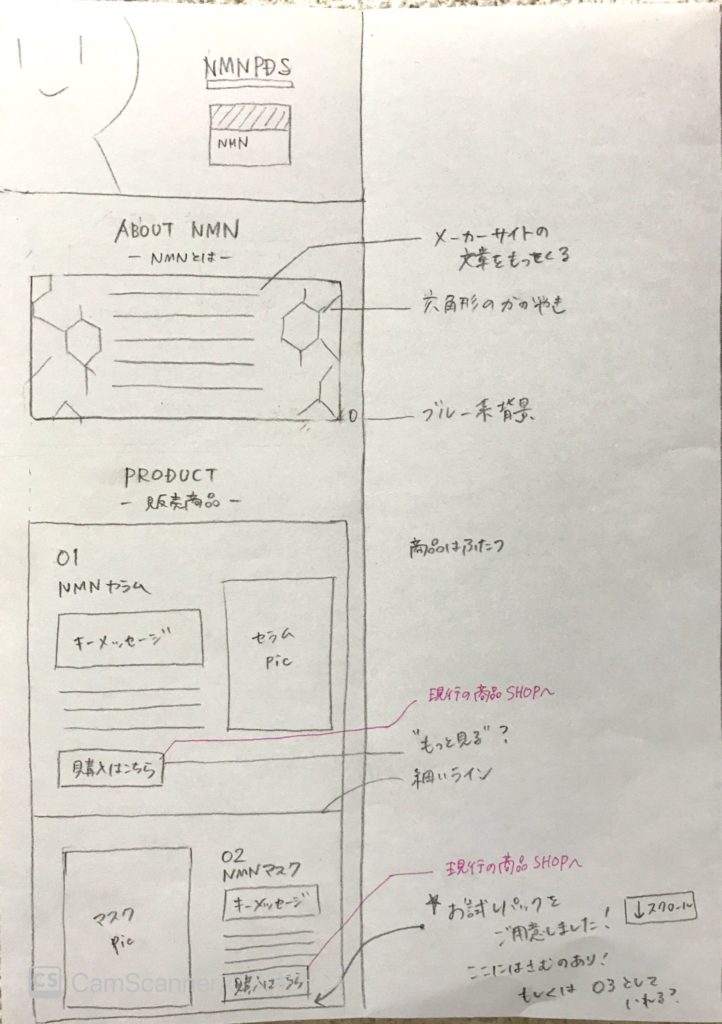 NMNPDS
NMN
ABOUT NMN
ー NMNとは ー
メーカーサイトの
文章をもってくる
六角形のかがやき
ブルー系背景
PRODUCT
ー 販売商品 ー
01
NMNセラム
キーメッセージ
セラム
pic
商品はふたつ
現行の商品SHOPへ
購入はこちら
"もっと見る"?
細いライン
02
NMNマスク
キーメッセージ
マスク
pic
購入はこちら
現行の商品SHOPへ
★お試しパックを
ご用意しました!
↓スクロール
ここにはさむのあり!
もしくは 03として
いれる?
CS CamScanner